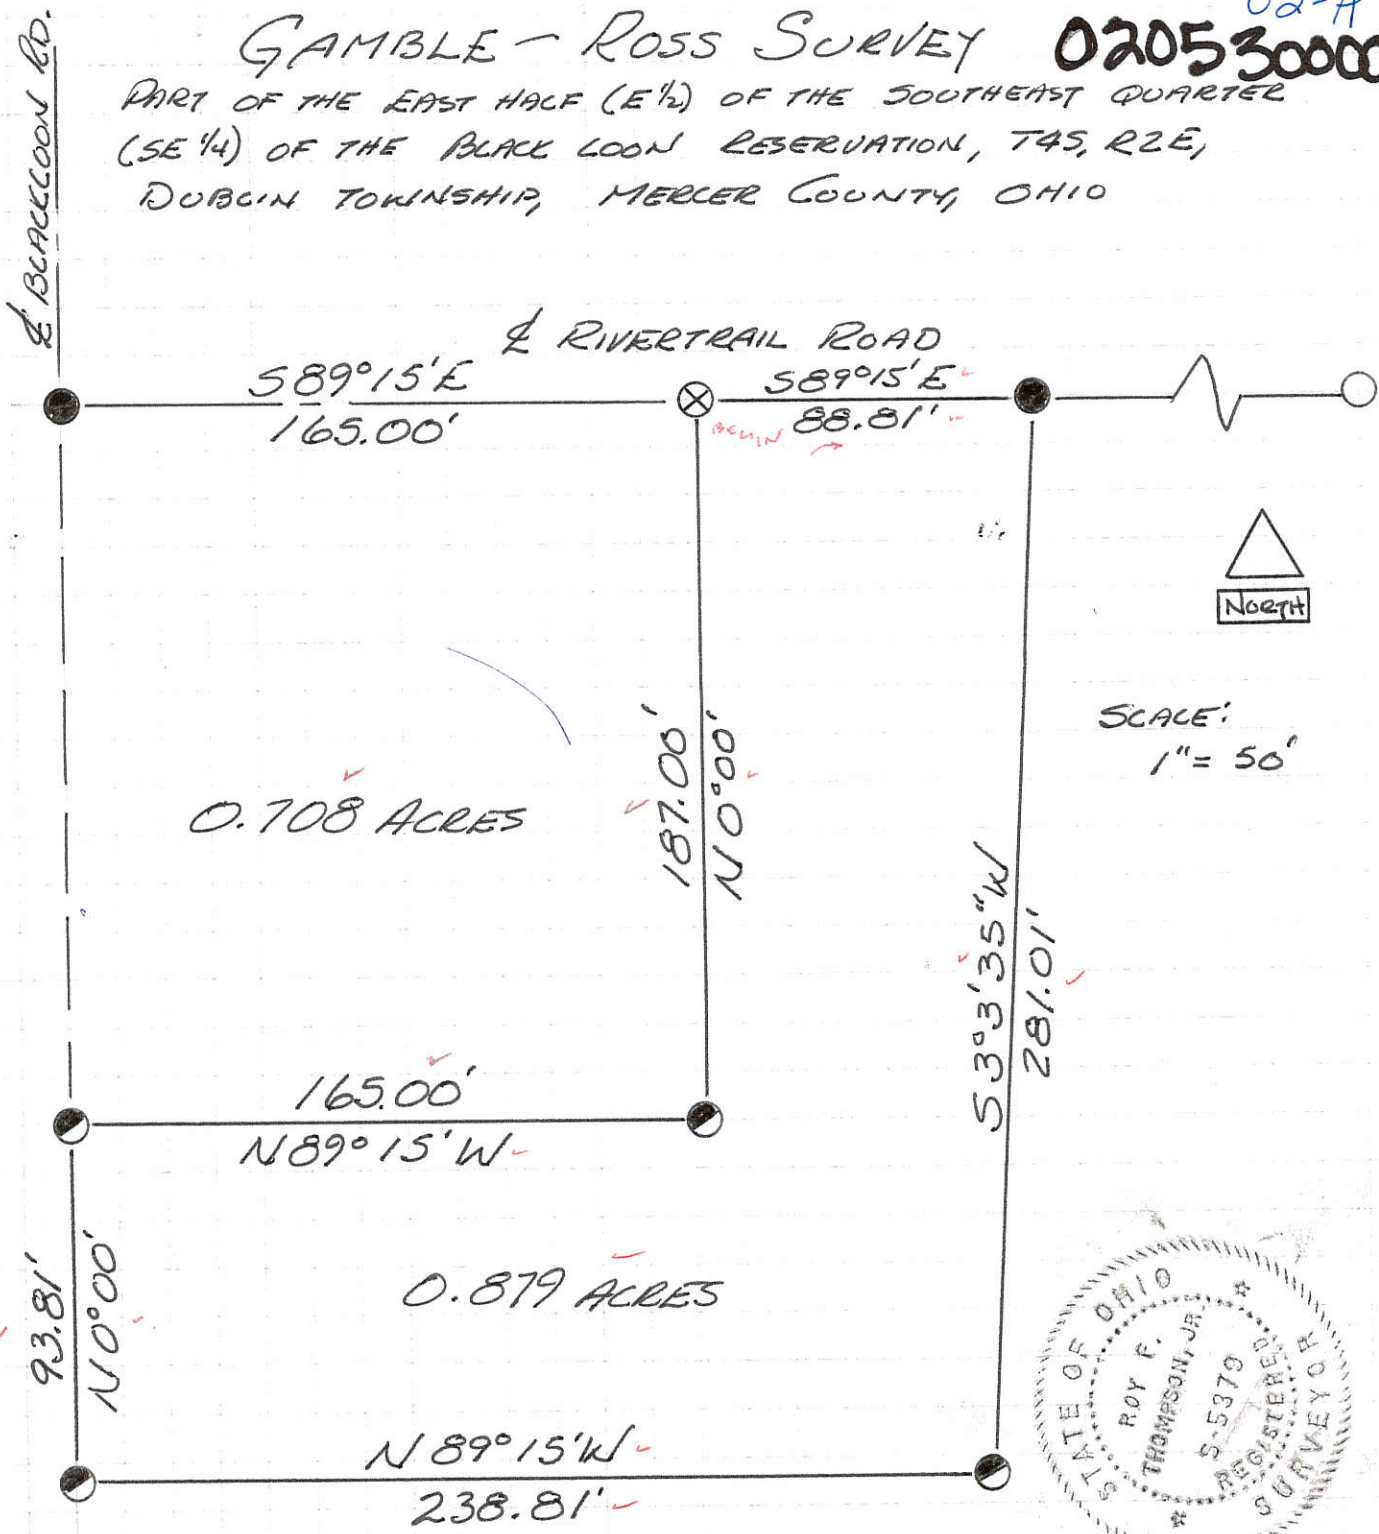 GAMBLE – ROSS SURVEY
PART OF THE EAST HALF (E½) OF THE SOUTHEAST QUARTER
(SE ¼) OF THE BLACK LOON RESERVATION, T4S, R2E,
DUBLIN TOWNSHIP, MERCER COUNTY, OHIO
02-A
℄ BLACKLOON RD.
℄ RIVERTRAIL ROAD
S89°15'E
165.00'
S89°15'E
88.81'
BEGIN
NORTH
SCALE:
1" = 50'
0.708 ACRES
187.00'
N0°00'
S3°3'35"W
281.01'
165.00'
N89°15'W
93.81'
N0°00'
0.879 ACRES
N89°15'W
238.81'
STATE OF OHIO
ROY F.
THOMPSON, JR.
S-5379
REGISTERED
SURVEYOR